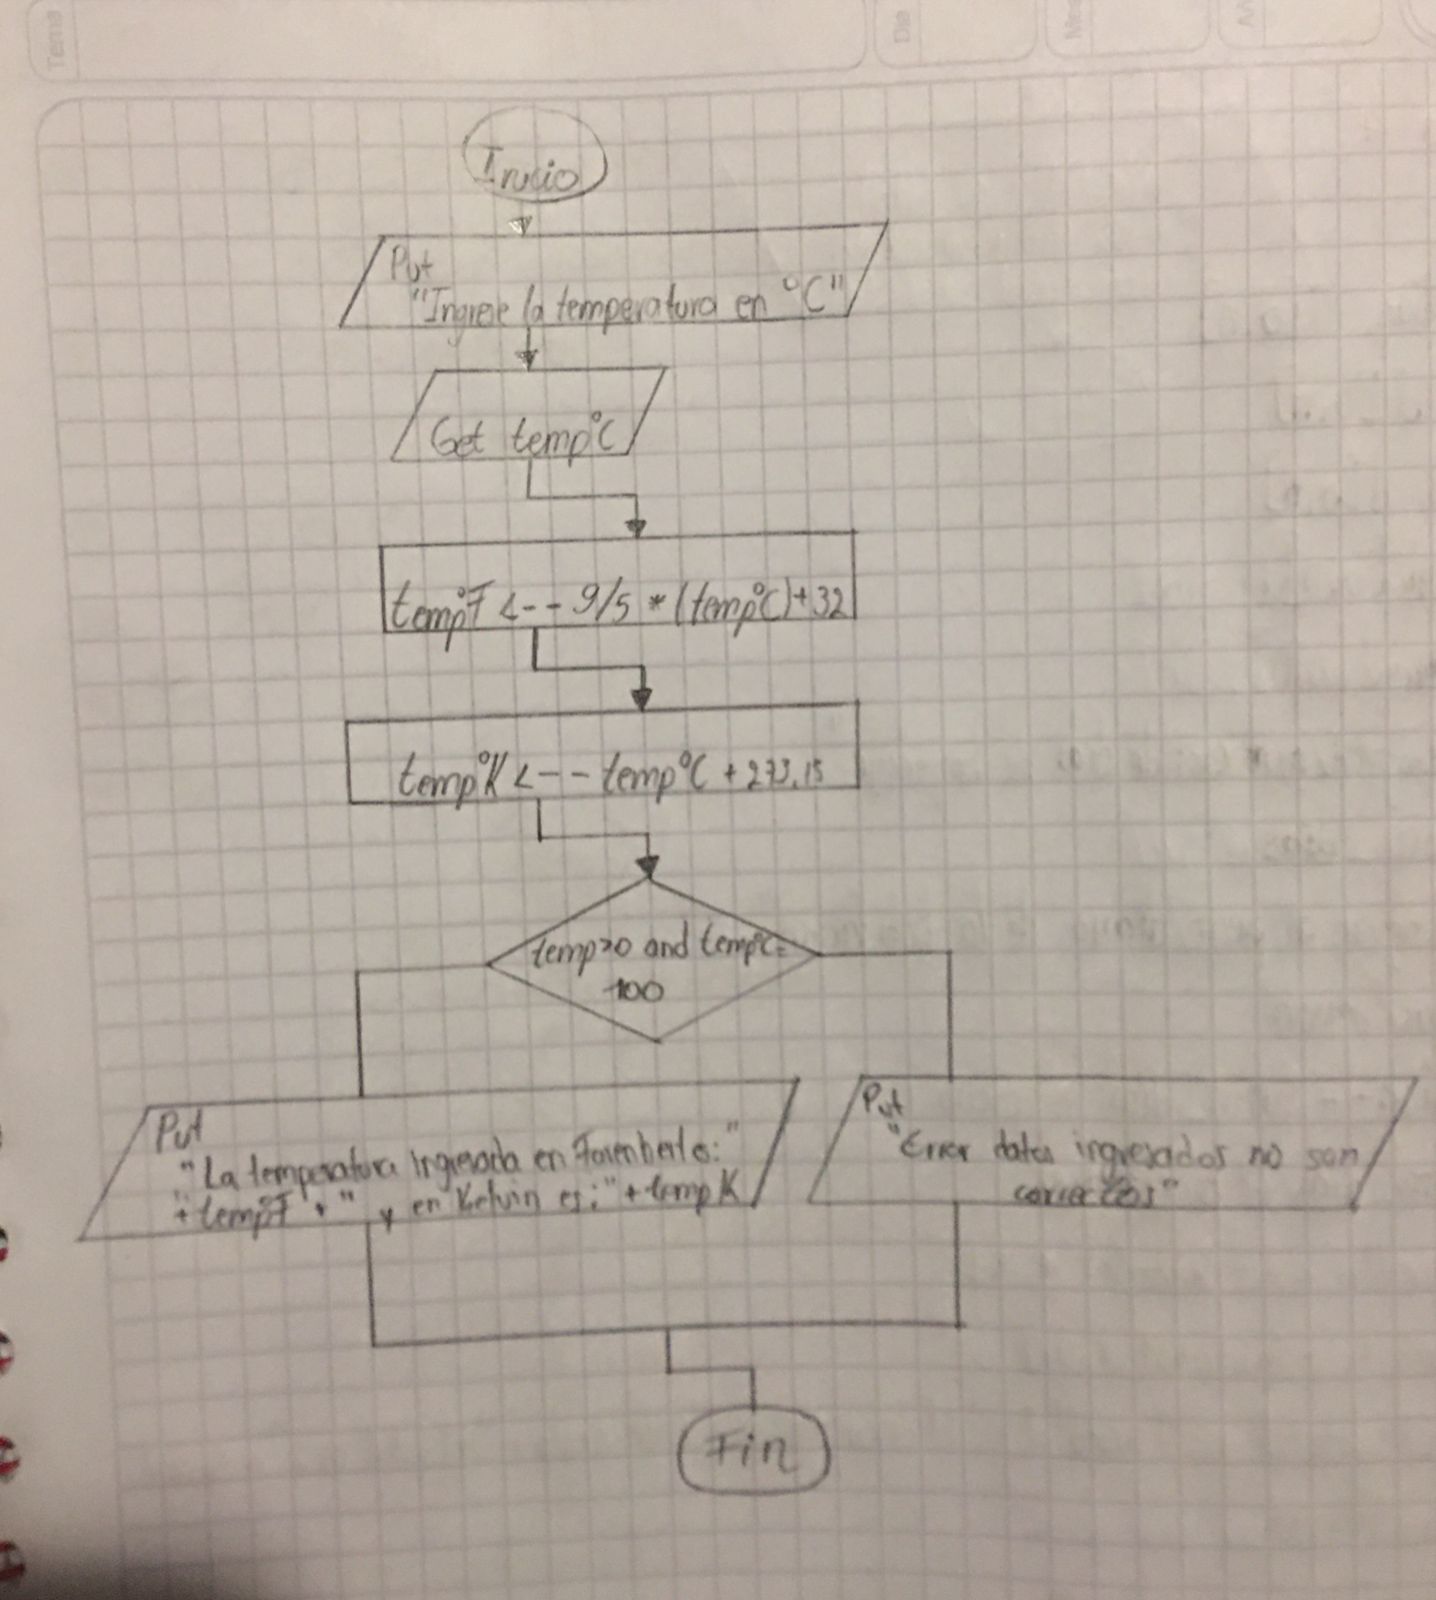 Tema
Dia
Mes
Inicio
Put
"Ingrese la temperatura en °C"
Get temp°C
temp°F <-- 9/5 * (temp°C)+32
temp°K <-- temp°C + 273,15
temp>0 and temp°C=
100
Put
"La temperatura ingresada en Farenherlo:"
+temp°F+" y en Kelvin es:"+tempK
Put
"Error datos ingresados no son
correctos"
Fin